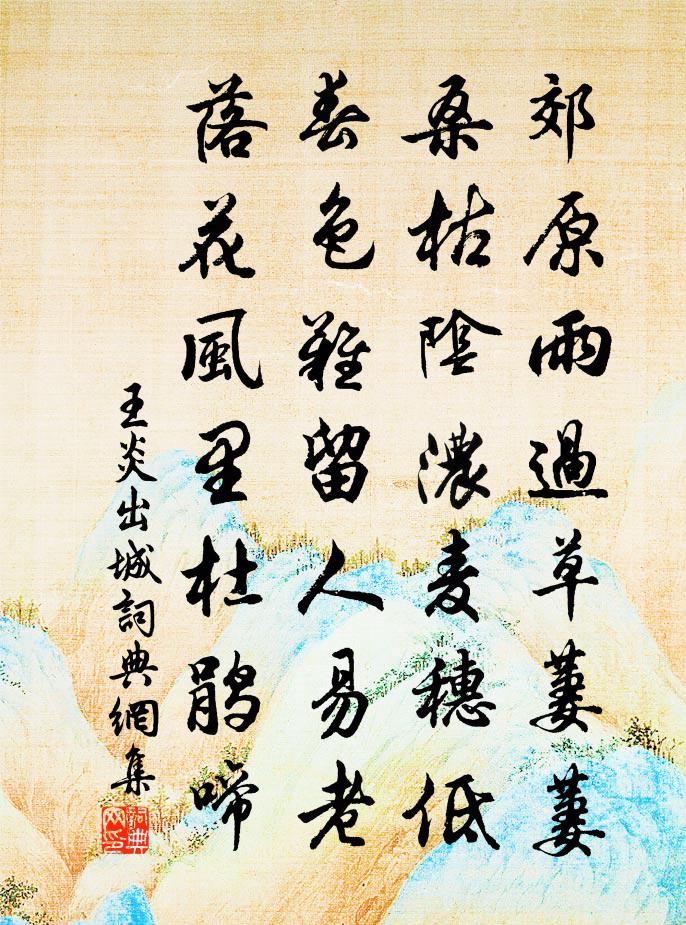 郊原雨過草萋萋
桑柘陰濃麦穗低
春色難留人易老
落花風里杜鵑啼
王炎出城詞典網集
詞典
网印